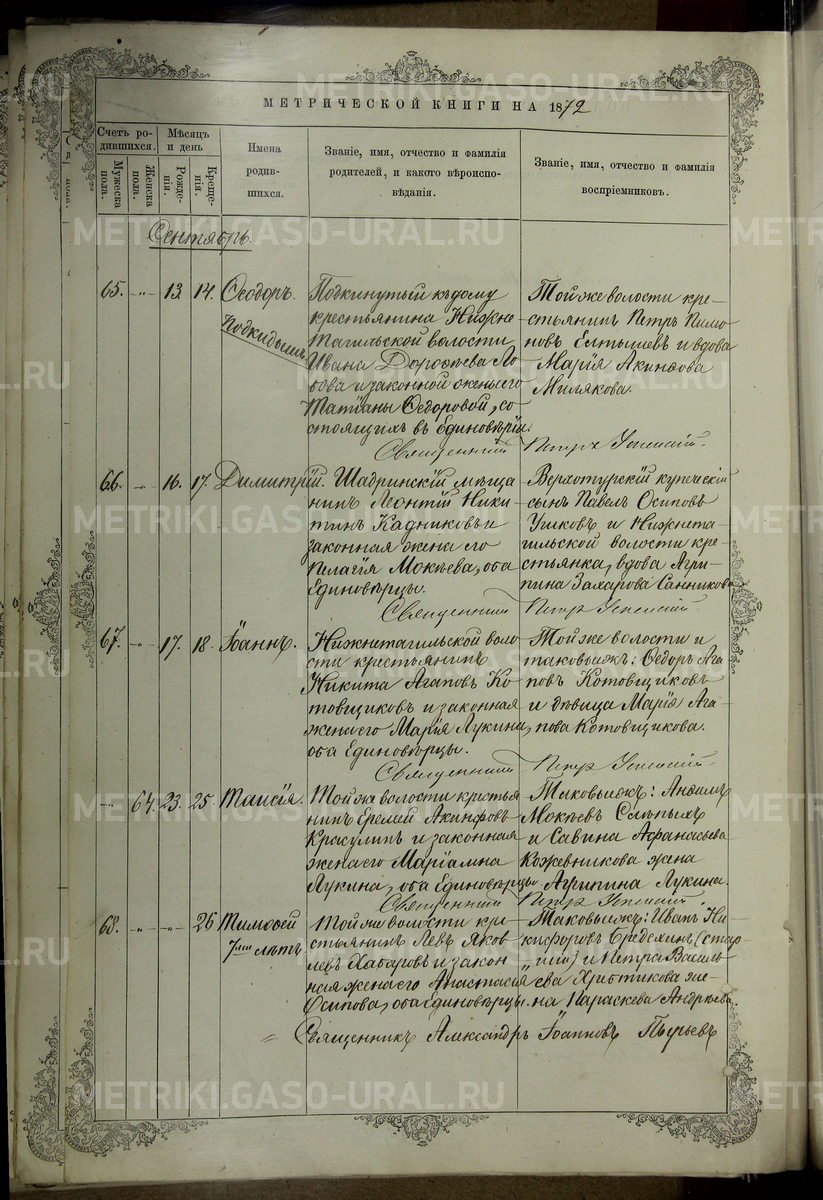 МЕТРИЧЕСКОЙ КНИГИ НА 1872
Счетъ ро-
дившихся.
Мужеска пола.
Женска пола.
Мѣсяцъ
и день
Рожде-
нія.
Креще-
нія.
Имена
родив-
шихся.
Званіе, имя, отчество и фамилія
родителей, и какого вѣроиспо-
вѣданія.
Званіе, имя, отчество и фамилія
воспріемниковъ.
Сентябрь.
65. " 13. 14. Ѳеодоръ.
Подкидышъ
Подкинутый къ дому
крестьянина Нижне
Тагильской волости
Ивана Дороѳеева
и законной жены его
Татіаны Ѳедоровой, со
стоящихъ въ Единовѣріи.
Той же волости кре-
стьянинъ Петръ Пимо
новъ Елтышевъ и вдова
Марія Акинѳова
Милякова.
Священникъ Петръ Успенскій.
66. " 16. 17. Димитрій.
Шадринскій мѣща
нинъ Леонтій Ники
тинъ Кадниковъ и
законная жена его
Пелагія Мокѣева, оба
Единовѣрцы.
Верхотурскій купеческій
сынъ Павелъ Осиповъ
Ушковъ и Нижнета-
гильской волости кре-
стьянка, вдова Агри-
пина Захарова Санникова
Священникъ Петръ Успенскій
67. " 17. 18. Іоаннъ.
Нижнетагильской воло
сти крестьянинъ
Никита Агаповъ Ко
товщиковъ и законная
жена его Марія Лукина,
оба Единовѣрцы.
Той же волости и
таковыижъ: Ѳедоръ Ага
повъ Котовщиковъ
и дѣвица Марія Ага-
пова Котовщикова.
Священникъ Петръ Успенскій
" 64. 23. 25. Таисія.
Той же волости крестья
нинъ Еремей Акинѳовъ
Красулинъ и законная
жена его Маріамна
Лукина, оба Единовѣрцы
Таковыижъ:
Мокѣевъ
и Савина Аѳанасьева
Кожевникова жена
Агрипина Лукина.
Священникъ Петръ Успенскій.
68. " " 26 Тимоѳей
7ми лѣтъ
Той же волости кре
стьянинъ Левъ Яков
левъ Хабаровъ и закон
ная жена его Анастасія
Осипова, оба единовѣрцы.
Таковыижъ: Иванъ Ни-
кифоровъ Бредихинъ (стар
шій) и Петра Василь
ева Хрѣтикова же
на Параскева Андреева.
Священникъ Александръ Іоанновъ
METRIKI.GASO-URAL.RU